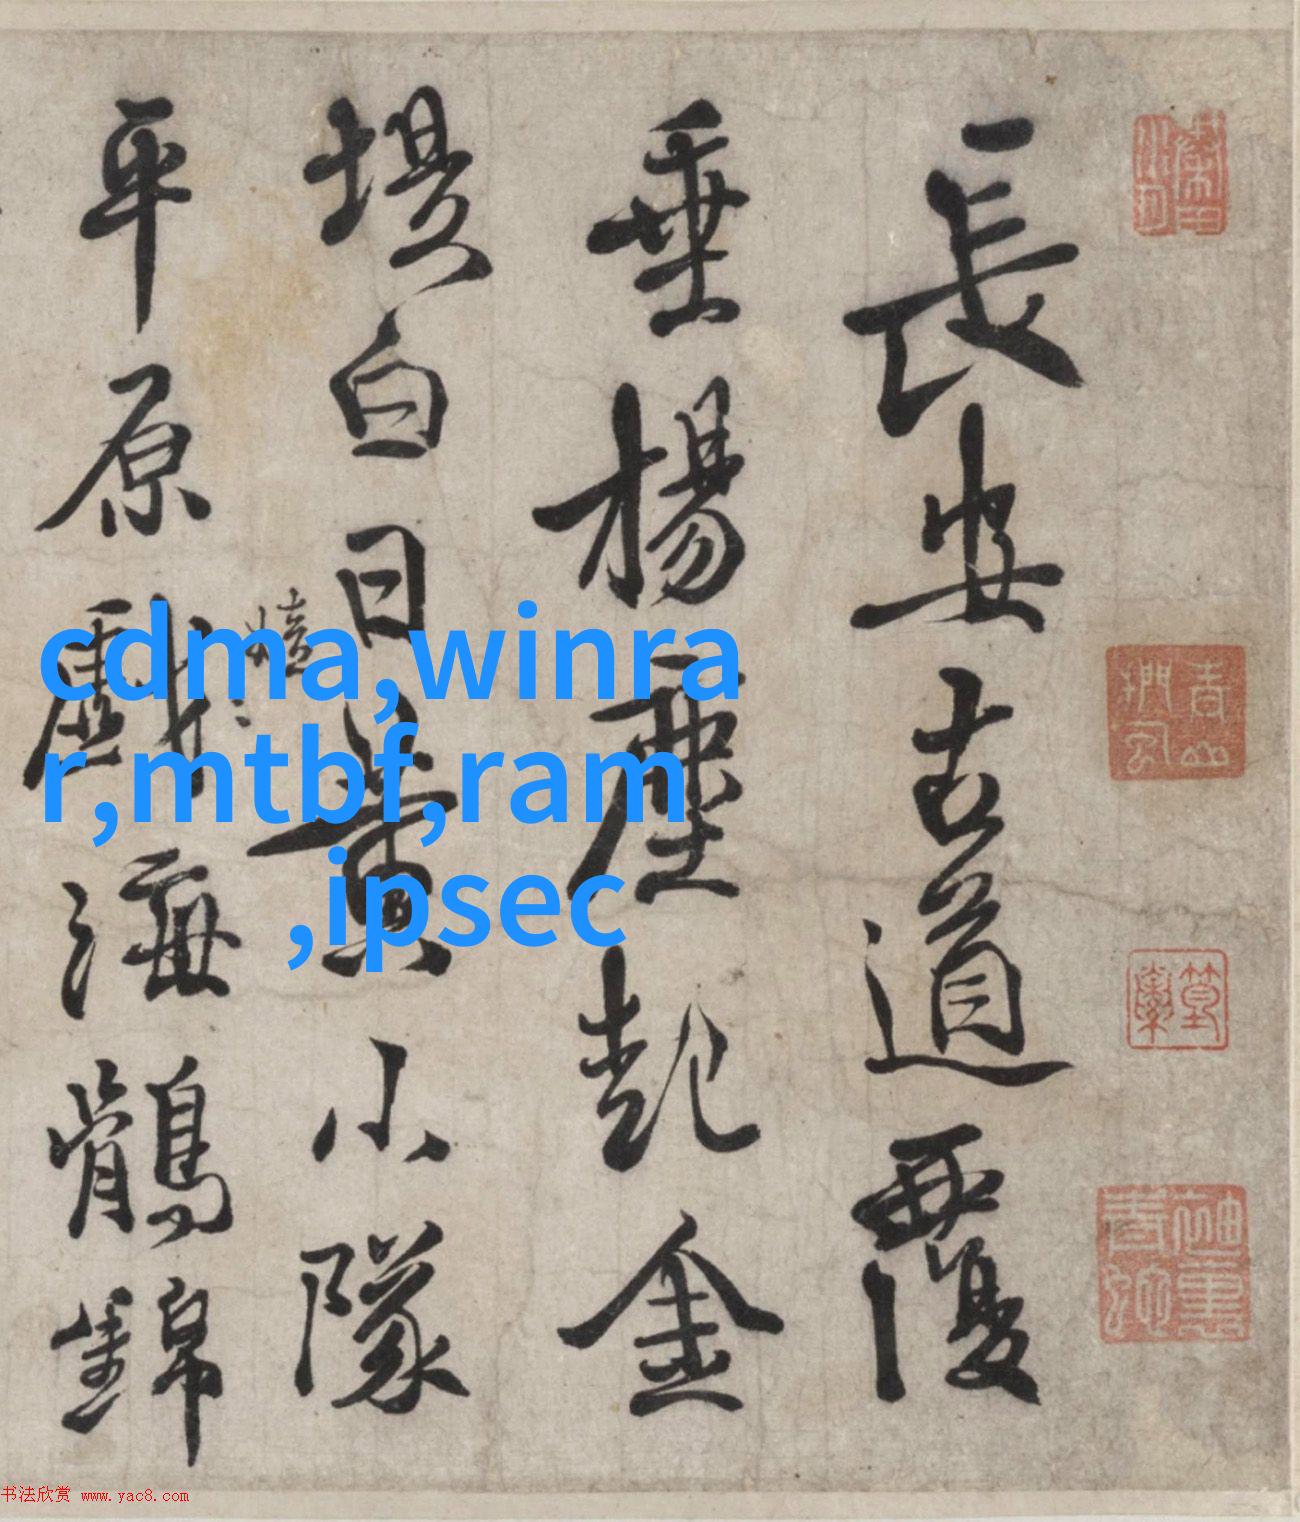 長安古道覆
垂楊塵起金
堤白日黃小隊
平原戲海鶻錦
cdma,winra
r,mtbf,ram
,ipsec
书法欣赏 www.yac8.com